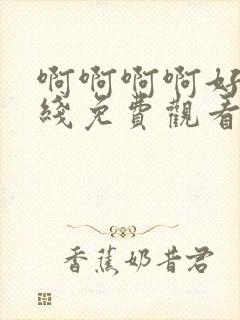 啊啊啊啊好
綫免費觀看
香蕉奶昔君